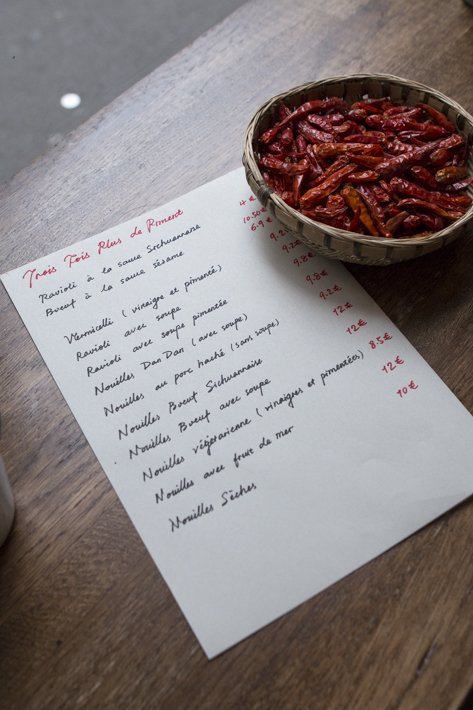 Trois Fois Plus de Piment
Ravioli à la sauce Sichuannaise
Bœuf à la sauce sésame
Vermicelli (vinaigre et pimenté)
Ravioli avec soupe
Ravioli avec soupe pimentée
Nouilles Dan Dan (avec soupe)
Nouilles au porc haché (sans soupe)
Nouilles Bœuf Sichuannaise
Nouilles Bœuf avec soupe
Nouilles végétarienne (vinaigres et pimentées)
Nouilles avec fruit de mer
Nouilles Sèches
4€
10.50€
6.9€
9.2
9.2
9.8
9.8€
9.2€
12€
12€
8.5€
12€
10€